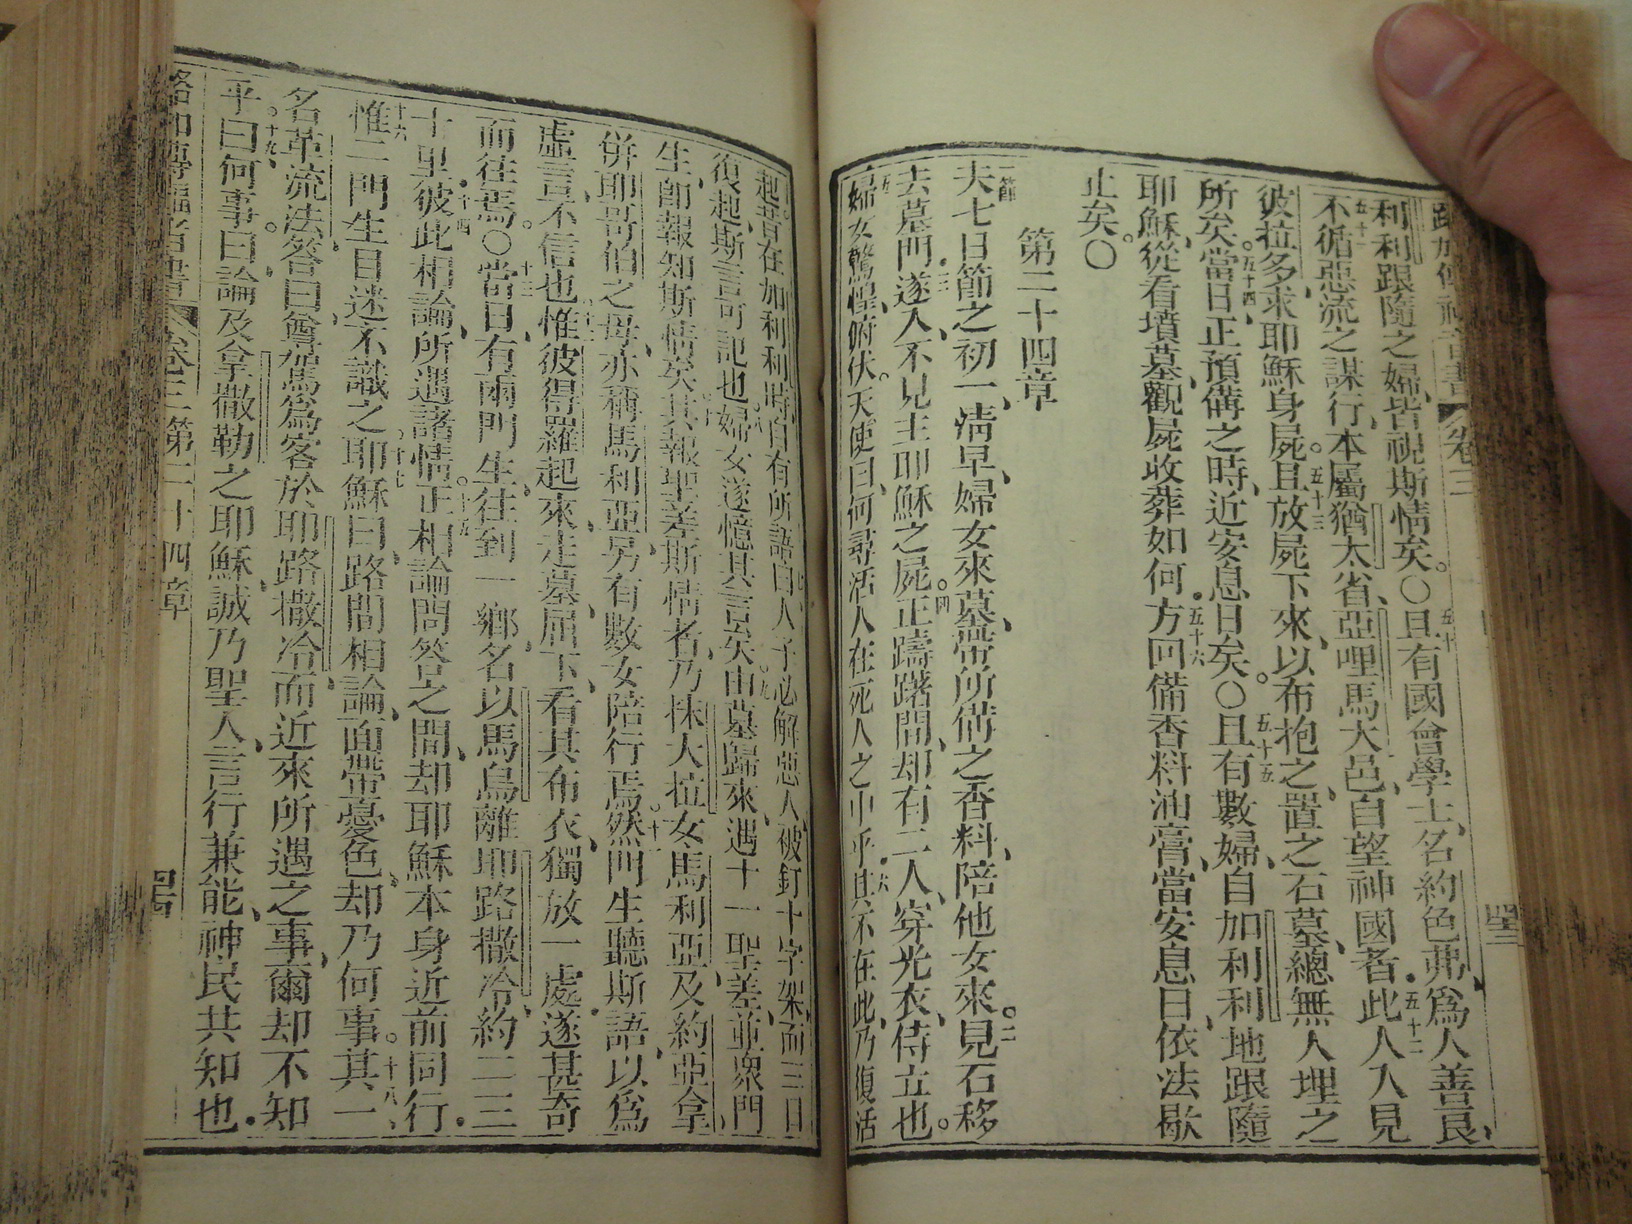 路加傳福音書 卷三
利利跟隨之婦皆視斯情矣。○五十且有國會學士名約色弗爲人善良
五十一不循惡流之謀行本屬猶太省亞哩馬大邑自望神國者五十二此人入見
彼拉多求耶穌身屍。五十三且放屍下來以布抱之置之石墓總無人埋之
所矣。五十四當日正預俻之時近安息日矣。○五十五且有數婦自加利利地跟隨
耶穌從看墳墓觀屍收葬如何五十六方回備香料油膏當安息日依法歇
止矣。○
第二十四章
一節夫七日節之初一淸早婦女來墓帶所俻之香料陪他女來。二見石移
去墓門三遂入不見主耶穌之屍。四正躊躇間却有二人穿光衣侍立也。
五婦女驚惶俯伏。天使曰何尋活人在死人之中乎六其不在此乃復活
起昔在加利利時自有所語七曰人子必解惡人被釘十字架而三日
復起斯言可記也八婦女遂憶其言矣九由墓歸來遇十一聖差並衆門
生卽報知斯情矣十其報聖差斯情者乃抹大拉女馬利亞及約亞拿
併耶哥伯之母亦稱馬利亞另有數女陪行焉。十一然門生聽斯語以爲
虛言不信也。十二惟彼得羅起來走墓屈下看其布衣獨放一處遂甚奇
而往焉○十三當日有兩門生往到一鄉名以馬烏離耶路撒冷約二三
十里十四彼此相論所遇諸情。十五正相論問答之間却耶穌本身近前同行
十六惟二門生目迷不識之。十七耶穌曰路間相論面帶憂色却乃何事。十八其一
名革流法答曰爾獨爲客於耶路撒冷而近來所遇之事爾却不知
乎。十九曰何事。曰論及拿撒勒之耶穌誠乃聖人言行兼能神民共知也
卷三第二十四章